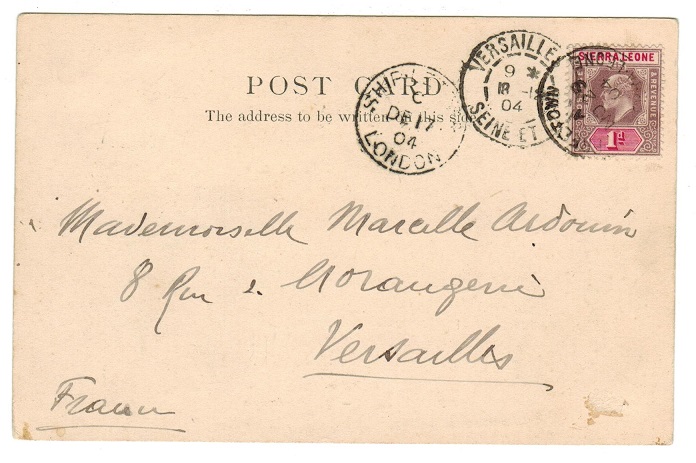 POST CARD
The address to be written on this side
SHIP LE
C
DE 17
04
LONDON
VERSAILLES
9 *
18 -12
04
SEINE ET
SIERRA LEONE
& REVENUE
1d
Mademoiselle Marcelle Ardouin
8 Rue
Versailles
France